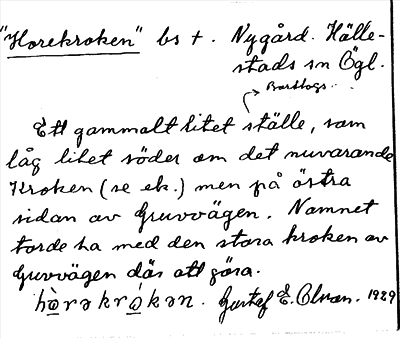 "Horekroken" bs †. Nygård. Hälle-
stads sn Ögl.
Ett gammalt litet ställe, som
låg litet söder om det nuvarande
Kroken (se ek.) men på östra
sidan av Gruvvägen. Namnet
torde ha med den stora kroken av
Gruvvägen där att göra.
hòrəkrókən. Gustaf E. 1929